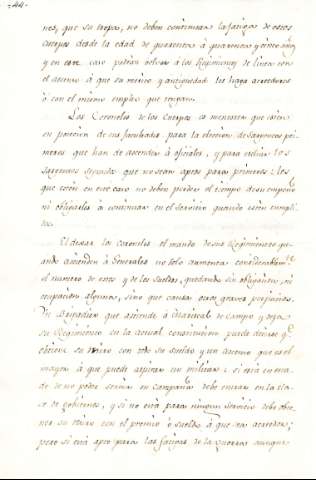 -44-
nes, que su tropa, no deben continuar la fatiga de estos
cuerpos desde la edad de quarenta á quarenta y cinco años
y en este caso podran volver á los Regimientos de linea con
el ascenso á que su merito y antiguedad les haga acrehedores
ó con el mismo empleo que tengan.
Los Coroneles de los Cuerpos es menester que estén
en posesion de sus facultades para la eleccion de Sargentos pri-
meros que han de ascender á oficiales, y para excluir los
Sargentos segundos que no sean aptos para primeros; los
que estén en este caso no deben perder el tiempo de su empeño
ni obligarles á continuar en el servicio quando estén cumpli-
dos.
El dexar los coroneles el mando de sus Regimientos qu-
ando ascienden á Generales no solo aumenta considerablem.te
el numero de estos y de los sueldos, quedando sin obligacion, ni
ocupacion alguna, sino que causa otros graves perjuicios.
Un Brigadier que asciende á Mariscal de Campo y deja
su Regimiento en la actual constitucion puede decirse q.e
obtiene su retiro con todo su sueldo y un ascenso que es el
mayor á que puede aspirar un militar; si está en eda-
de de no poder servir en campaña debe entrar en la cla-
se de gobiernos, y si no está para ningun servicio debe obte-
ner su retiro con el premio ó sueldo á que sea acrehedor;
pero si está apto para las fatigas de la guerra aunque